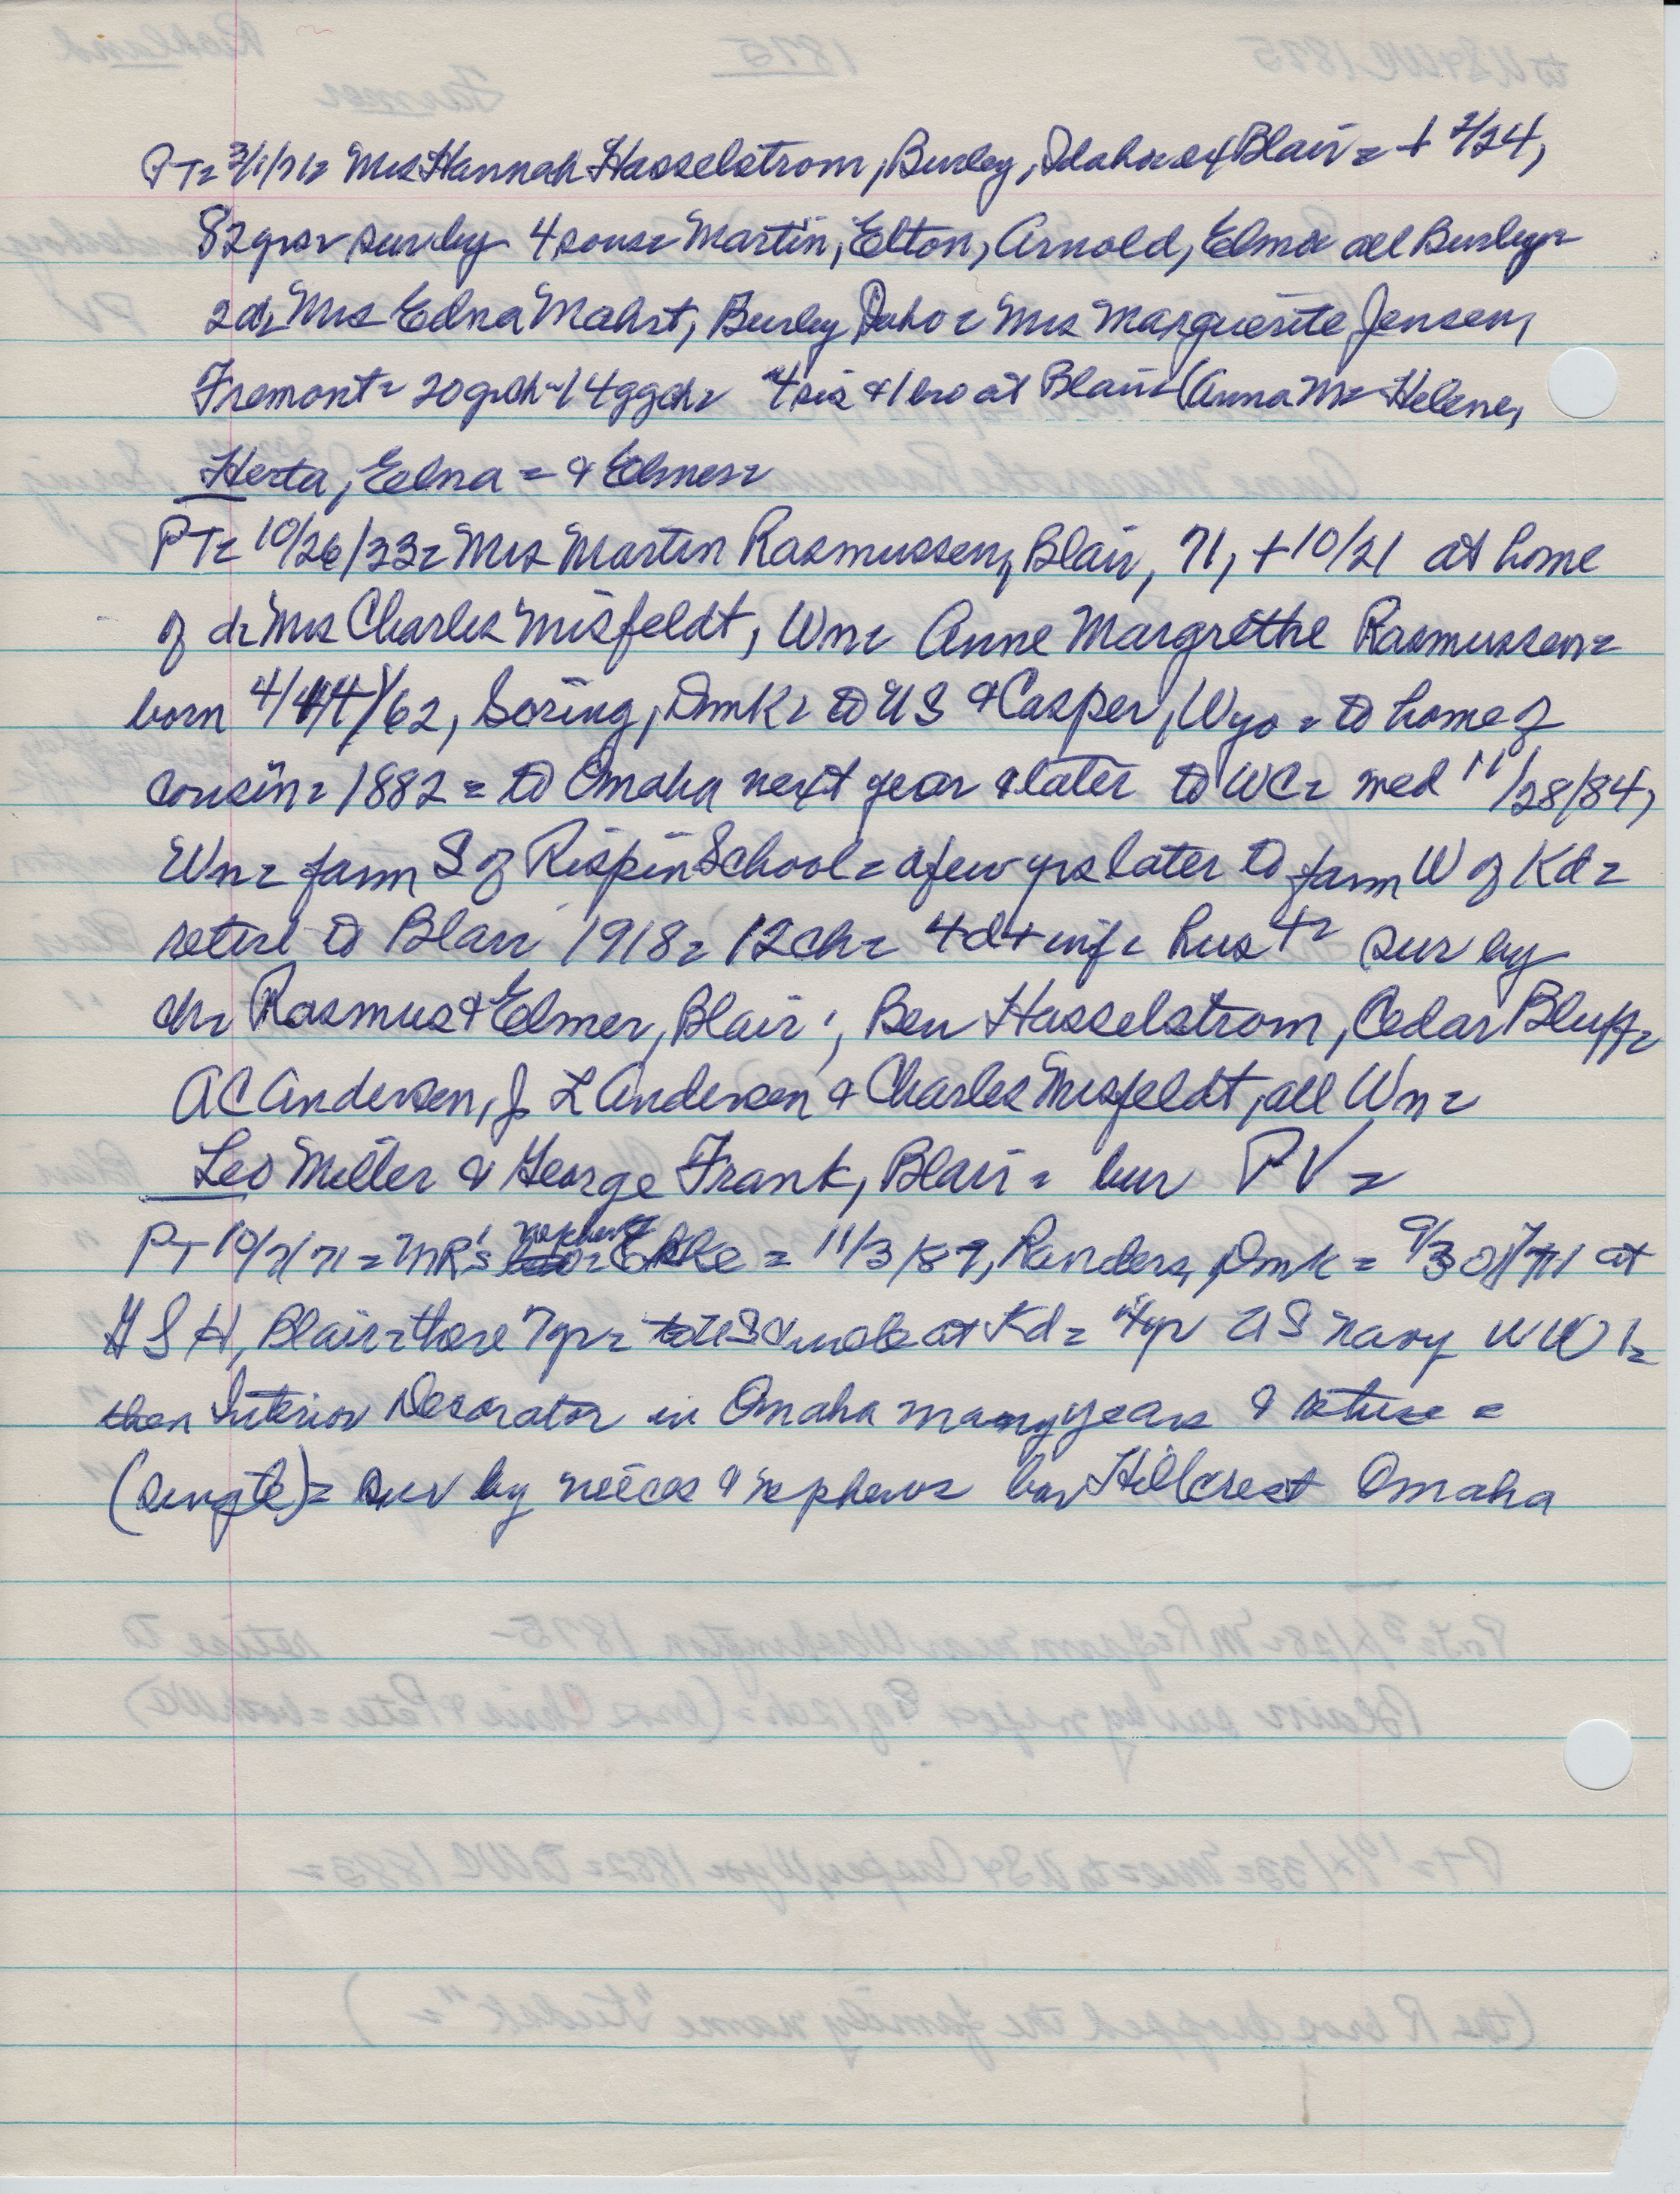 PT= 3/1/71= Mrs Hannah Hasselstrom, Burley, Idaho ex Blair = + 2/24,
82 yrs= sur by 4 sons= Martin, Elton, Arnold, Elmer all Burley=
2d= Mrs Edna Mahrt, Burley Idaho = Mrs Marguerite Jensen,
Fremont= 20 grch - 14 ggch= 4 sis & 1 bro at Blair= (Anna M= Helene,
Herta, Edna = & Elmer=
PT= 10/26/33= Mrs Martin Rasmussen, Blair, 71, + 10/21 at home
of d= Mrs Charles Misfeldt, Wn= Anne Margrethe Rasmussen=
born 4/ /62, Soring, Dmk= to US & Casper, Wyo = to home of
cousin= 1882 = to Omaha next year & later to WC= med 11/28/84,
Wn= farm S of Rispin School= a few yrs later to farm W of Kd=
retire to Blair 1918= 12 ch= 4 d + inf= hus += sur by
ch= Rasmus & Elmer, Blair; Ben Hasselstrom, Cedar Bluff=
AC Andersen, J L Andersen & Charles Misfeldt, all Wn=
Leo Miller & George Frank, Blair = bur PV=
PT 10/7/71 = MR's nephew= = 11/3/87, Randers, Dmk = 9/30/71 at
GSH, Blair= there 7 yr= to US & uncle at Kd= 4 yr US navy WW1=
then Interior Decorator in Omaha many years & retire =
(single)= sur by nieces & nephews= bur Hillcrest Omaha